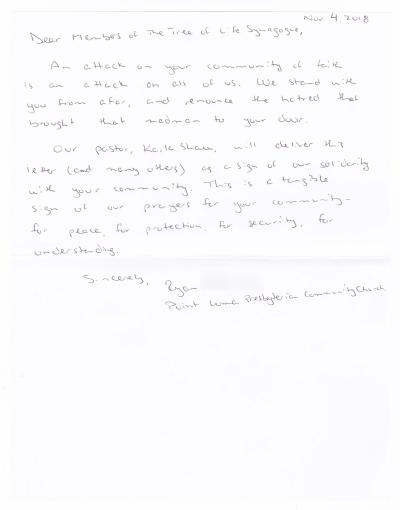 Nov 4 2018
Dear Members of The Tree of Life Synagogue,
An attack on your community of faith
is an attack on all of us. We stand with
you from afar, and renounce the hatred that
brought that madman to your door.
Our pastor, Karla Shaw, will deliver this
letter (and many others) as a sign of our solidarity
with your community. This is a tangible
sign of our prayers for your community -
for peace, for protection, for security, for
understanding.
Sincerely,
Ryan
Point Loma Presbyterian Community Church